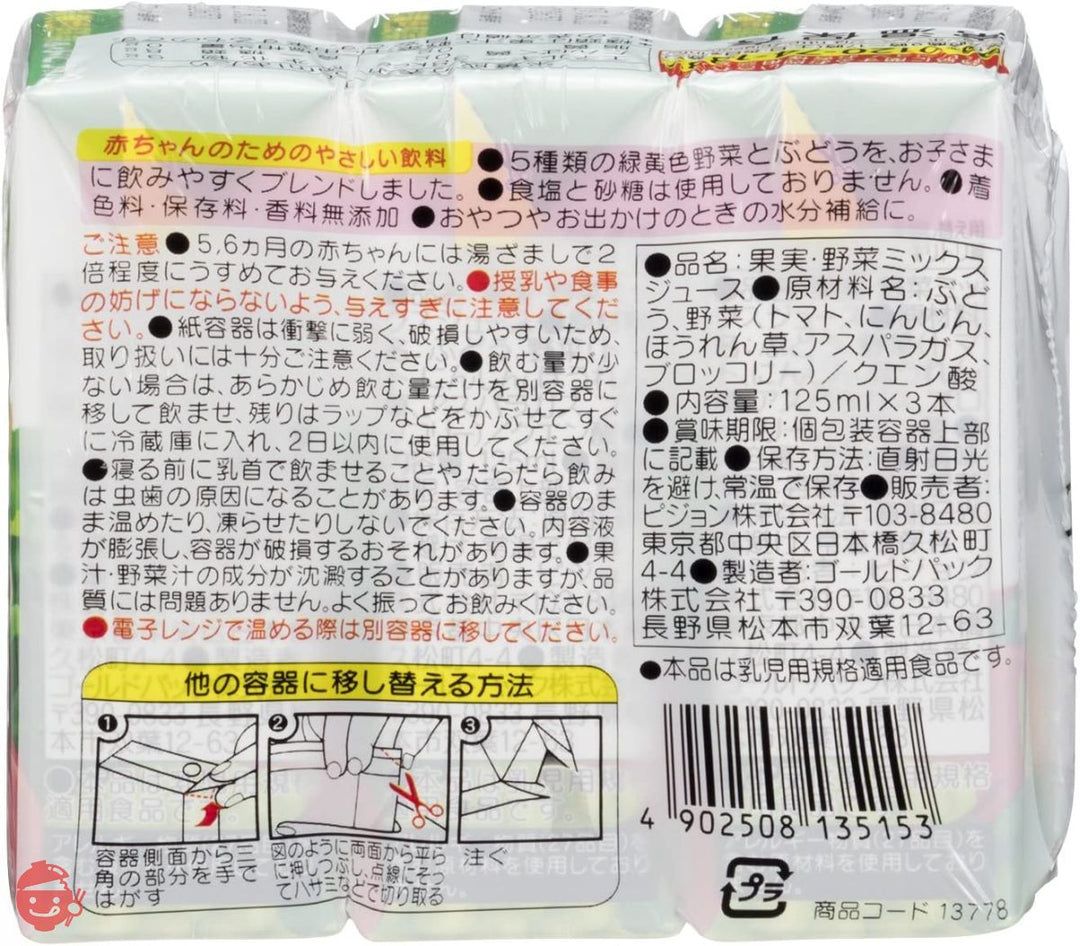 赤ちゃんのためのやさしい飲料
●5種類の緑黄色野菜とぶどうを、お子さま
に飲みやすくブレンドしました。●食塩と砂糖は使用しておりません。●着
色料・保存料・香料無添加 ●おやつやお出かけのときの水分補給に。
ご注意 ●5,6ヵ月の赤ちゃんには湯ざましで2
倍程度にうすめてお与えください。●授乳や食事
の妨げにならないよう、与えすぎに注意してくだ
さい。●紙容器は衝撃に弱く、破損しやすいため、
取り扱いには十分ご注意ください。●飲む量が少
ない場合は、あらかじめ飲む量だけを別容器に
移して飲ませ、残りはラップなどをかぶせてすぐ
に冷蔵庫に入れ、2日以内に使用してください。
●寝る前に乳首で飲ませることやだらだら飲み
は虫歯の原因になることがあります。●容器のま
ま温めたり、凍らせたりしないでください。内容液
が膨張し、容器が破損するおそれがあります。●果
汁・野菜汁の成分が沈澱することがありますが、品
質には問題ありません。よく振ってお飲みください。
●電子レンジで温める際は別容器に移してください。
●品名:果実・野菜ミックス
ジュース●原材料名:ぶど
う、野菜(トマト、にんじん、
ほうれん草、アスパラガス、
ブロッコリー)/クエン酸
●内容量:125ml×3本
●賞味期限:個包装容器上部
に記載●保存方法:直射日光
を避け、常温で保存●販売者:
ピジョン株式会社〒103-8480
東京都中央区日本橋久松町
4-4●製造者:ゴールドパック
株式会社 〒390-0833
長野県松本市双葉12-63
●本品は乳児用規格適用食品です。
他の容器に移し替える方法
1
2
3
容器側面から三
角の部分を手で
はがす
図のように両面から平ら
に押しつぶし、点線にそっ
てハサミなどで切り取る
注ぐ
4 902508 135153
プラ
商品コード 13778